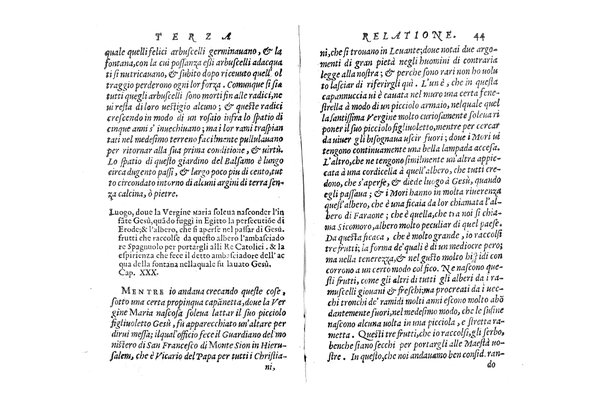 TERZA
quale quelli felici arbuscelli germinauano, & la
fontana, con la cui possanza essi arbuscelli adacqua
ti si nutricauano, & subito dopo riceuuto quell' ol
traggio perderono ogni lor forza. Comunque si sia
tutti quegli arbuscelli si sono morti fin alle radici, ne
vi resta di loro uestigio alcuno; & queste radici
crescendo in modo di un rosaio infra lo spatio di
cinque anni s'inuechiano; ma i lor rami traspian
tati nel medesimo terreno facilmente pullulauano
per ritornar alla sua prima conditione, & uirtù.
Lo spatio di questo giardino del Balsamo è lungo
circa dugento passi, & largo poco piu di cento, tut
to circondato intorno di alcuni argini di terra sen-
za calcina, ò pietre.
Luogo, doue la Vergine Maria soleua nasconder l'in
fãte Gesù, quãdo fuggì in Egitto la persecutiõe di
Erode; & l'albero, che si aperse nel passar di Gesù.
frutti che raccolse da questo albero l'ambasciado
re Spagnuolo per portargli alli Re Catolici. & la
esperienza che fece il detto ambasciadore dell'ac
qua della fontana nella quale fu lauato Gesù.
Cap. XXX.
MENTRE io andaua creando queste cose,
sotto una certa propinqua capãnetta, doue la Ver
gine Maria nascosa soleua lattar il suo picciolo
figliuoletto Gesù, fu apparecchiato un'altare per
dirui messa; ilqual'officio fece il Guardiano del mo
nistero di San Francesco di Monte Sion in Hieru-
salem, che è Vicario del Papa per tutti i Christia-
ni,
RELATIONE. 44
ni, che si trouano in Leuante; doue notai due argo-
menti di gran pietà negli huomini di contraria
legge alla nostra; & perche sono rari non ho uolu
to lasciar di riferirgli quì. L'un'è, che in questa
capannuccia ui è cauata nel muro una certa fene-
strella à modo di un picciolo armaio, nel quale quel
la santissima Vergine molto curiosamente soleua ri
poner il suo picciolo figliuoletto, mentre per cercar
da uiuer gli bisognaua uscir fuori; doue i Mori ui
tengono continuamente una bella lampada accesa.
L'altro, che ne tengono similmente un'altra appie-
cata à una cordicella à quell'albero, che tutti credo-
no, che s'aperse, & diede luogo à Gesù, quando
egli passaua; & i Mori l'hanno in molta riuerenza
quest'albero. è una ficaia da lor chiamata l'albe-
ro di Faraone; che è quella, che tra noi si chiama
Sicomoro, albero molto peculiar di quel paese.
Da questa ficaia, che è molto grande, io raccolsi
tre frutti; la forma de' quali è di un mediocre pero;
ma nella tenerezza, & nel gusto molto si
corrono à un certo modo col fico. Ne nascono que-
sti frutti, come gli altri di tutti gli alberi da i ra-
muscelli giouani & freschi; ma procedono da i uec
chi tronchi de' ramidi molti anni essendo molto abõ
dantemente fuori, nel medesimo modo, che le susine
nascono alcuna uolta in una picciola, e stretta ra-
metta. Questi tre frutti, che io raccolsi, gli serbo,
benche siano secchi per portargli alle Maestà uo-
stre. In questo, che noi andauamo ben considerando
do